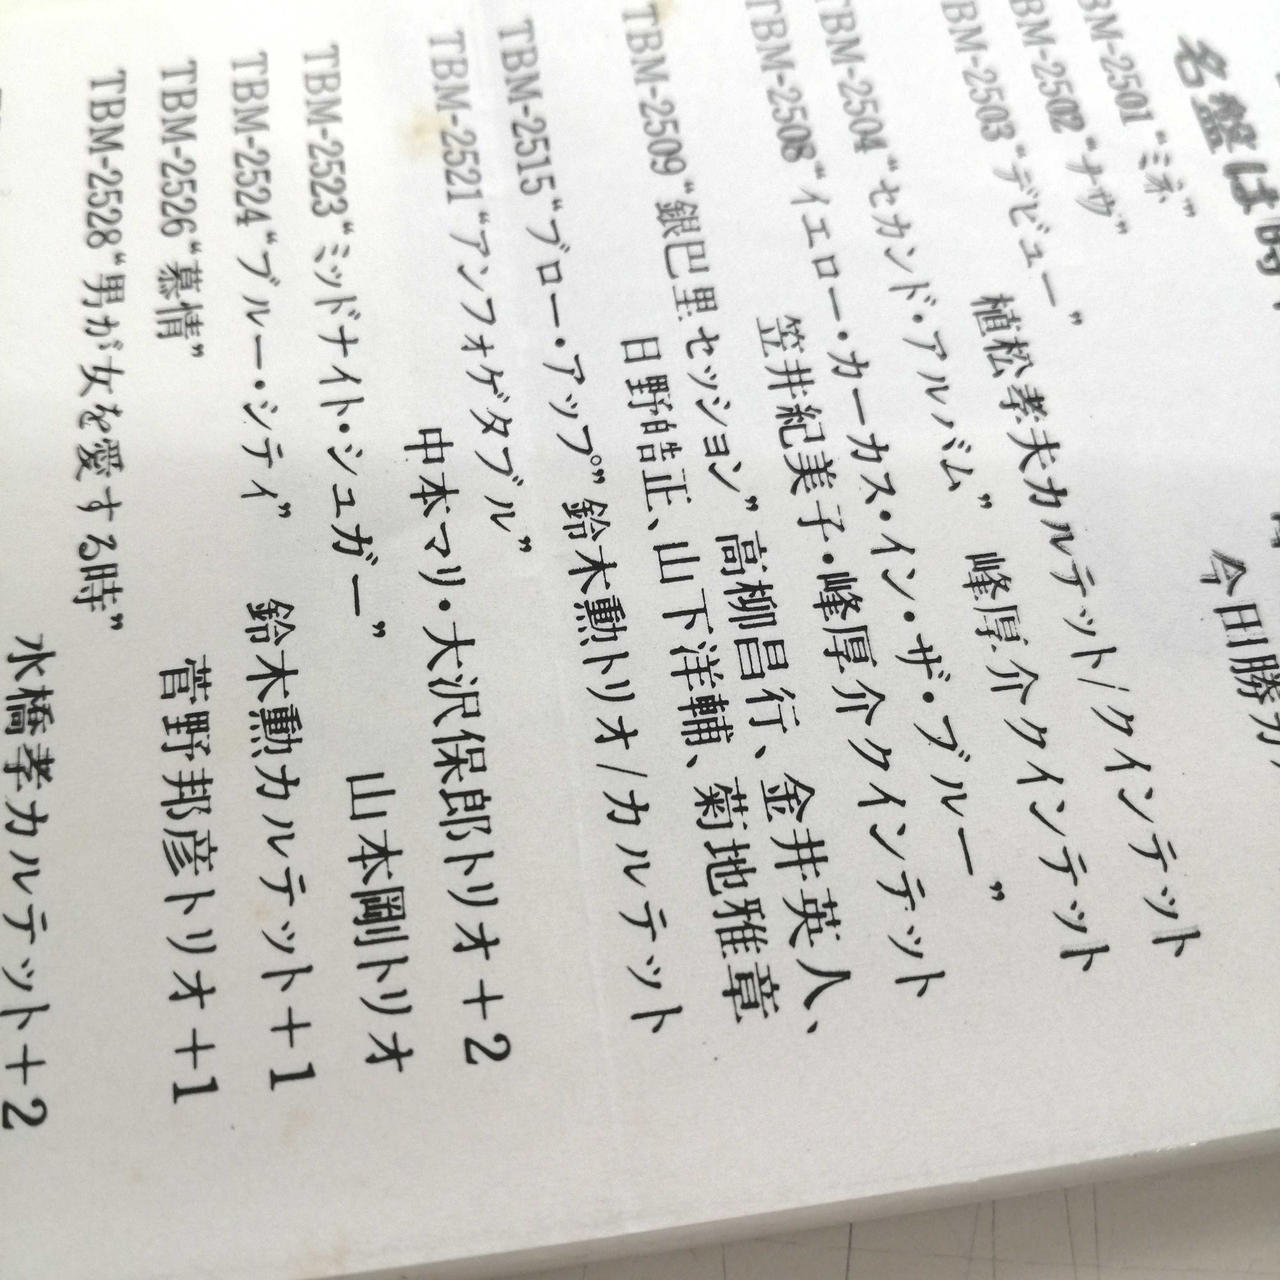 名盤は時
TBM-2501 “ミネ”
今田勝カ
TBM-2502 “ナサ”
TBM-2503 “デビュー”
植松孝夫カルテット/クインテット
TBM-2504 “セカンド・アルバム” 峰厚介クインテット
TBM-2508 “イエロー・カーカス・イン・ザ・ブルー”
笠井紀美子・峰厚介クインテット
TBM-2509 “銀巴里セッション” 高柳昌行、金井英人、
日野皓正、山下洋輔、菊地雅章
TBM-2515 “ブロー・アップ” 鈴木勲トリオ/カルテット
TBM-2521 “アンフォゲタブル”
中本マリ・大沢保郎トリオ+2
TBM-2523 “ミッドナイト・シュガー”
山本剛トリオ
TBM-2524 “ブルー・シティ” 鈴木勲カルテット+1
TBM-2526 “慕情” 菅野邦彦トリオ+1
TBM-2528 “男が女を愛する時”
水橋孝カルテット+2